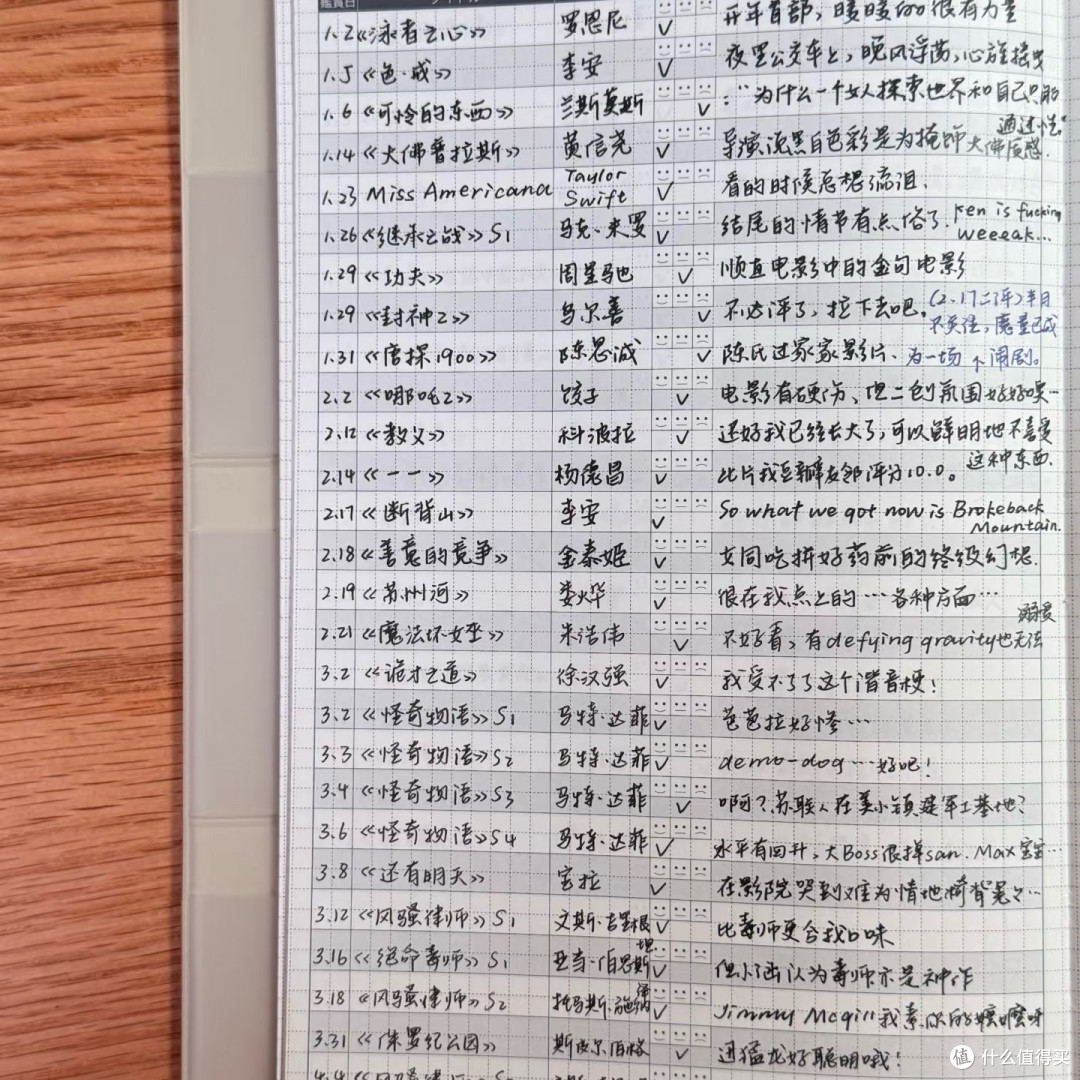 鑑賞日
1.2《泳者之心》 罗恩尼 ✓ 开年首部，暖暖的很有力量
1.5《色·戒》 李安 ✓ 夜里公交车上，晚风浮荡，心旌摇曳
1.6《可怜的东西》 兰斯莫斯 ✓ :"为什么一个女人探索世界和自己只能通过性"
1.14《大佛普拉斯》 黄信尧 ✓ 导演说黑白色彩是为掩饰大佛质感.
1.23 Miss Americana Taylor Swift ✓ 看的时候总想流泪.
1.26《继承之战》S1 马克·米罗 ✓ 结尾的情节有点俗了. Ken is fucking weeeak...
1.29《功夫》 周星驰 ✓ 顺直电影中的金句电影
1.29《封神2》 乌尔善 ✓ 不必评了，拉下去吧. (2.17二评)半月不关注，魔童已成为一场 闹剧。
1.31《唐探1900》 陈思诚 ✓ 陈氏过家家影片.
2.2《哪吒2》 饺子 ✓ 电影有硬伤、但二创氛围好好哭…
2.12《教父》 科波拉 ✓ 还好我已经长大了，可以鲜明地不喜爱这种东西.
2.14《一一》 杨德昌 ✓ 此片我豆瓣友邻评分10.0。
2.17《断背山》 李安 ✓ So what we got now is Brokeback Mountain.
2.18《善意的竞争》 金泰姬 ✓ 女同吃拼好药前的终极幻想.
2.19《苏州河》 娄烨 ✓ 很在我点上的…各种方面…
2.21《魔法坏女巫》 朱浩伟 ✓ 不好看，有defying gravity也无法
3.2《诡才之道》 徐汉强 ✓ 我受不了了这个谐音梗！
3.2《怪奇物语》S1 马特·达菲 ✓ 芭芭拉好惨…
3.3《怪奇物语》S2 马特·达菲 ✓ demo-dog…好吧！
3.4《怪奇物语》S3 马特·达菲 ✓ 啊？苏联人在美小镇建军工基地？
3.6《怪奇物语》S4 马特·达菲 ✓ 水平有回升，大Boss很掉san. Max宝宝…
3.8《还有明天》 宝拉 ✓ 在影院哭到难为情地
3.12《风骚律师》S1 文斯·吉里根 ✓ 比毒师更合我口味
3.16《绝命毒师》S1 亚当·伯恩斯坦 ✓ 但小函认为毒师亦是神作
3.18《风骚律师》S2 托马斯·施纳 ✓ Jimmy Mcgill我素你的嬷嬷呀
3.31《侏罗纪公园》 斯皮尔伯格 ✓ 迅猛龙好聪明哦！
4.4《风骚律师》
值 什么值得买